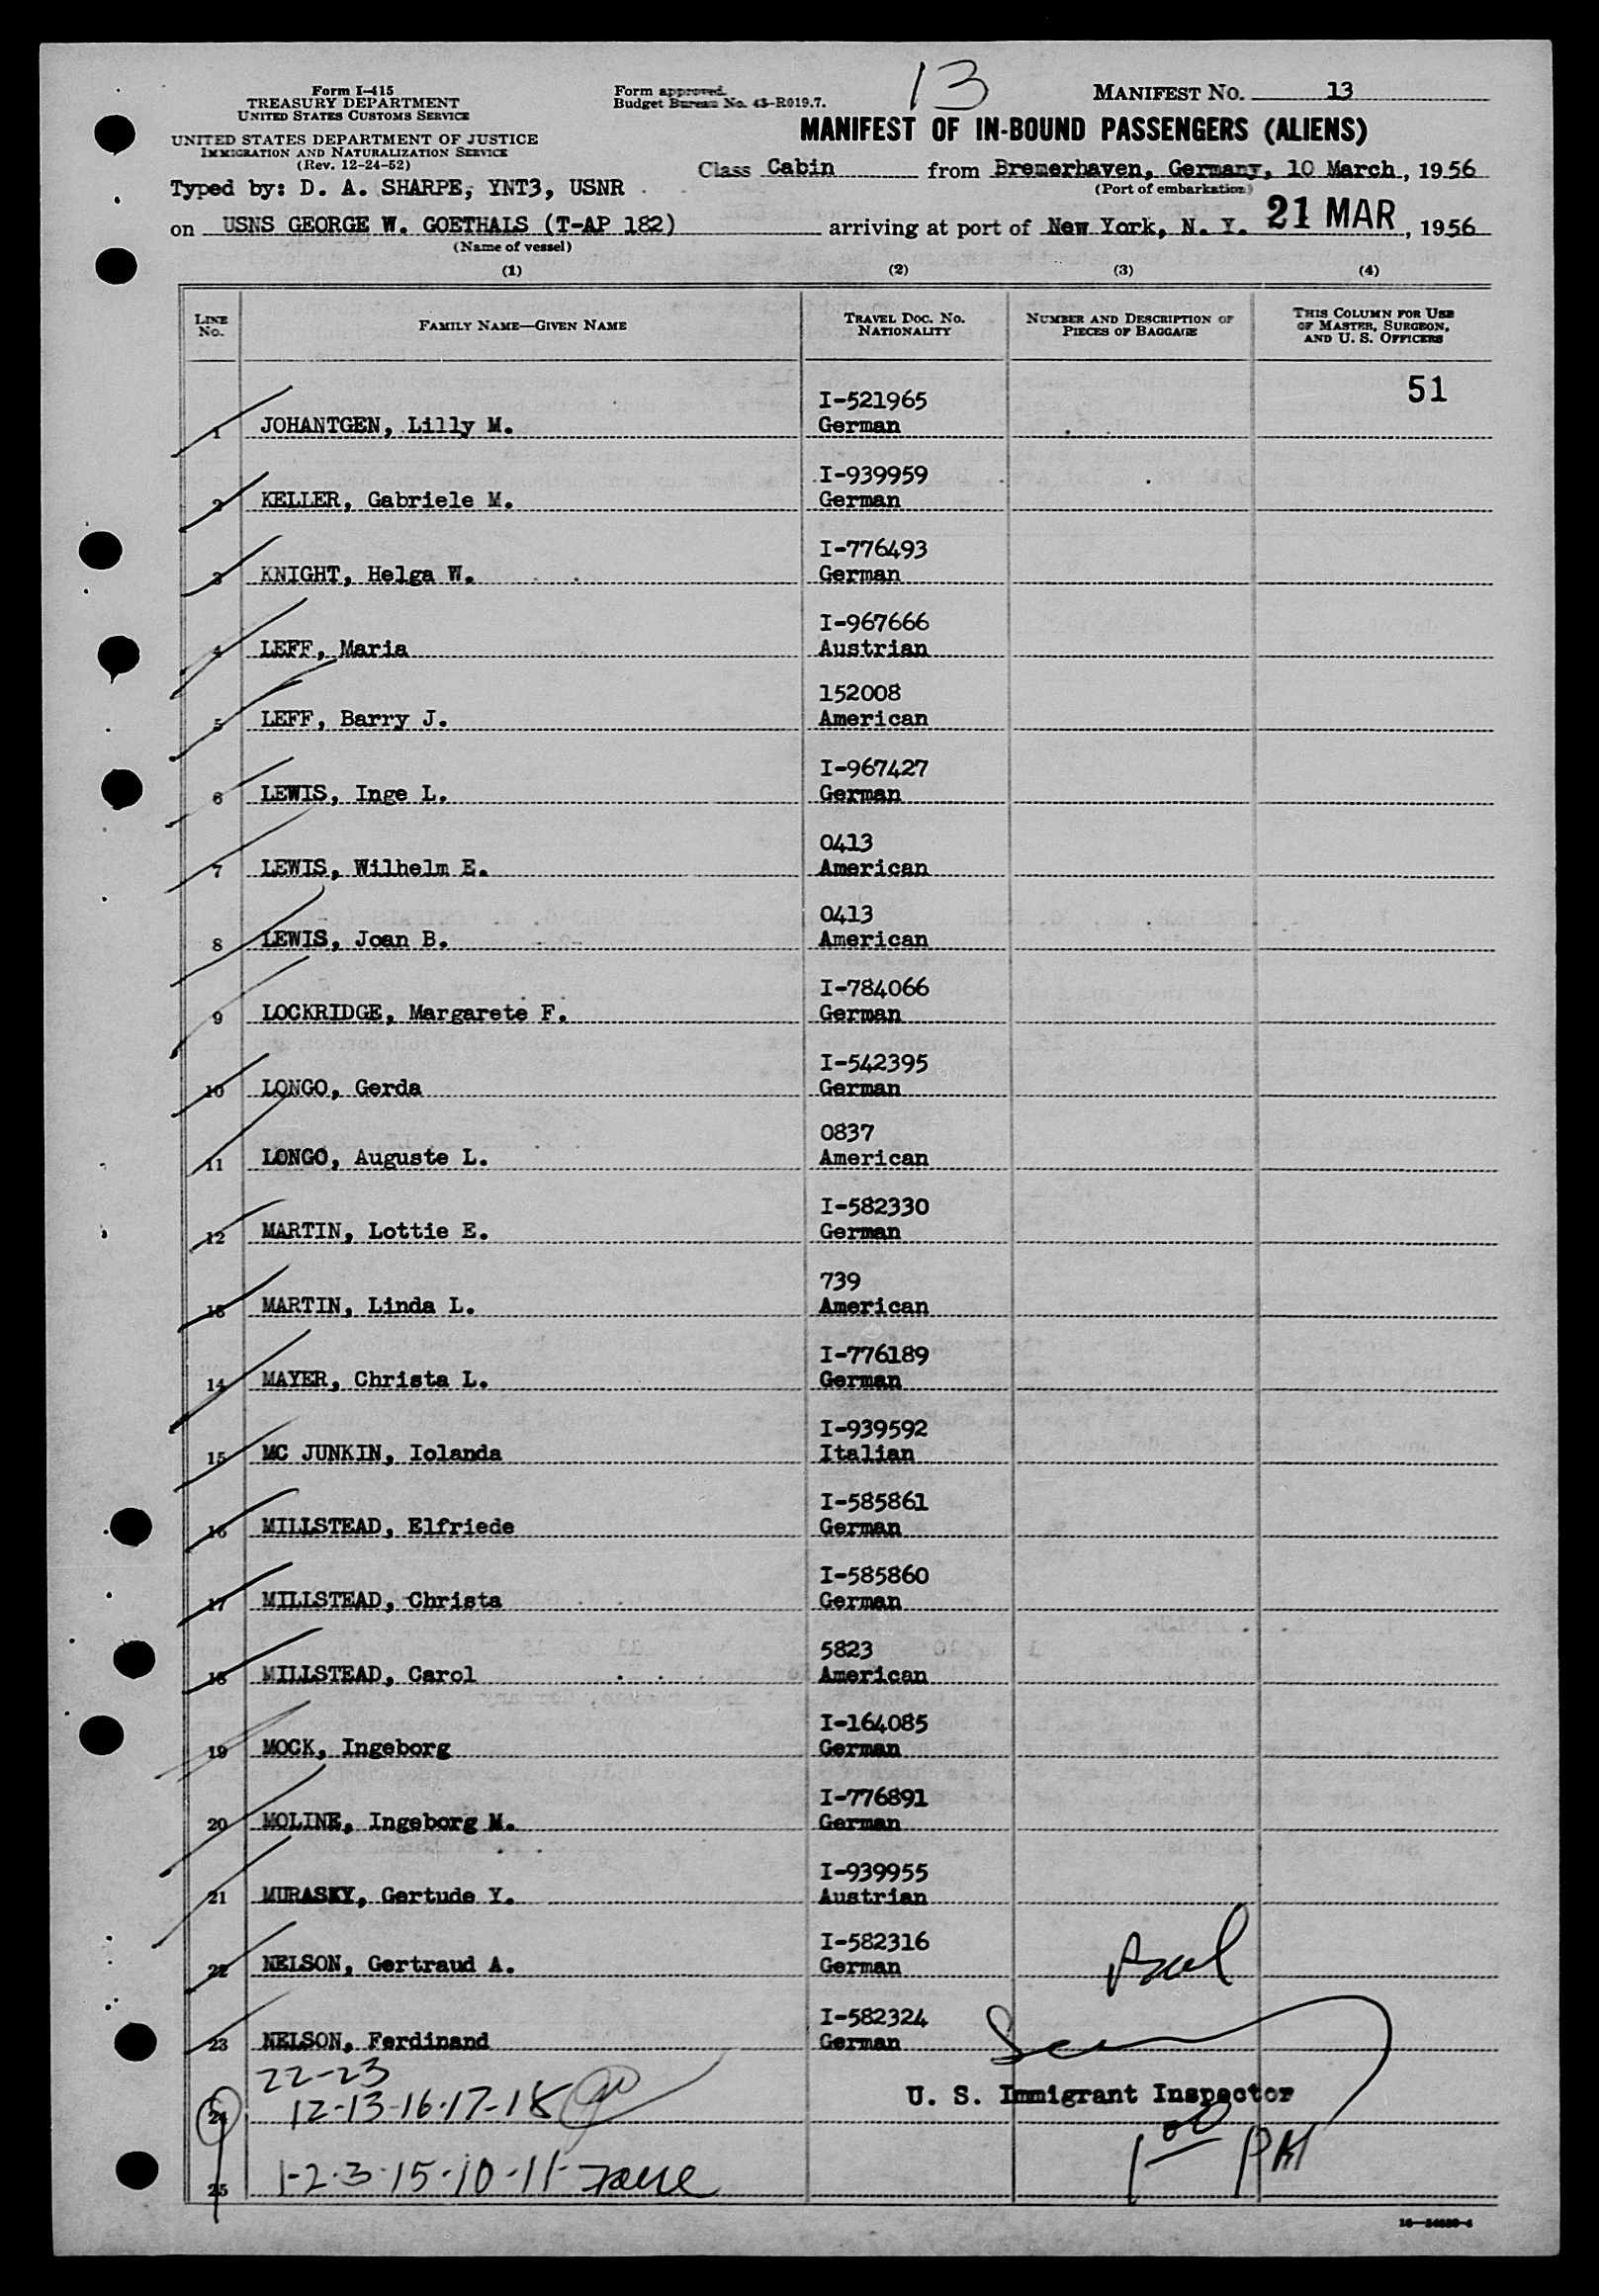 13
Form I-415
TREASURY DEPARTMENT
UNITED STATES CUSTOMS SERVICE
UNITED STATES DEPARTMENT OF JUSTICE
IMMIGRATION AND NATURALIZATION SERVICE
(Rev. 12-24-52)
Form approved.
Budget Bureau No. 43-R019.7.
MANIFEST NO. 13
MANIFEST OF IN-BOUND PASSENGERS (ALIENS)
Class Cabin from Bremerhaven, Germany, 10 March, 1956
(Port of embarkation)
Typed by: D. A. SHARPE, YNT3, USNR
on USNS GEORGE W. GOETHALS (T-AP 182) arriving at port of New York, N. Y. 21 MAR, 1956
(Name of vessel)
(1) (2) (3) (4)
LINE No. FAMILY NAME—GIVEN NAME TRAVEL DOC. NO. NATIONALITY NUMBER AND DESCRIPTION OF PIECES OF BAGGAGE THIS COLUMN FOR USE OF MASTER, SURGEON, AND U. S. OFFICERS
51
I-521965
1 JOHANTGEN, Lilly M. German
I-939959
2 KELLER, Gabriele M. German
I-776493
3 KNIGHT, Helga W. German
I-967666
4 LEFF, Maria Austrian
152008
5 LEFF, Barry J. American
I-967427
6 LEWIS, Inge L. German
0413
7 LEWIS, Wilhelm E. American
0413
8 LEWIS, Joan B. American
I-784066
9 LOCKRIDGE, Margarete F. German
I-542395
10 LONGO, Gerda German
0837
11 LONGO, Auguste L. American
I-582330
12 MARTIN, Lottie E. German
739
13 MARTIN, Linda L. American
I-776189
14 MAYER, Christa L. German
I-939592
15 MC JUNKIN, Iolanda Italian
I-585861
16 MILLSTEAD, Elfriede German
I-585860
17 MILLSTEAD, Christa German
5823
18 MILLSTEAD, Carol American
I-164085
19 MOCK, Ingeborg German
I-776891
20 MOLINE, Ingeborg M. German
I-939955
21 MURASKY, Gertude Y. Austrian
I-582316
22 NELSON, Gertraud A. German
I-582324
23 NELSON, Ferdinand German
22-23
U. S. Immigrant Inspector
24 12-13-16-17-18
1 00 PM
25 1-2-3-15-10-11-